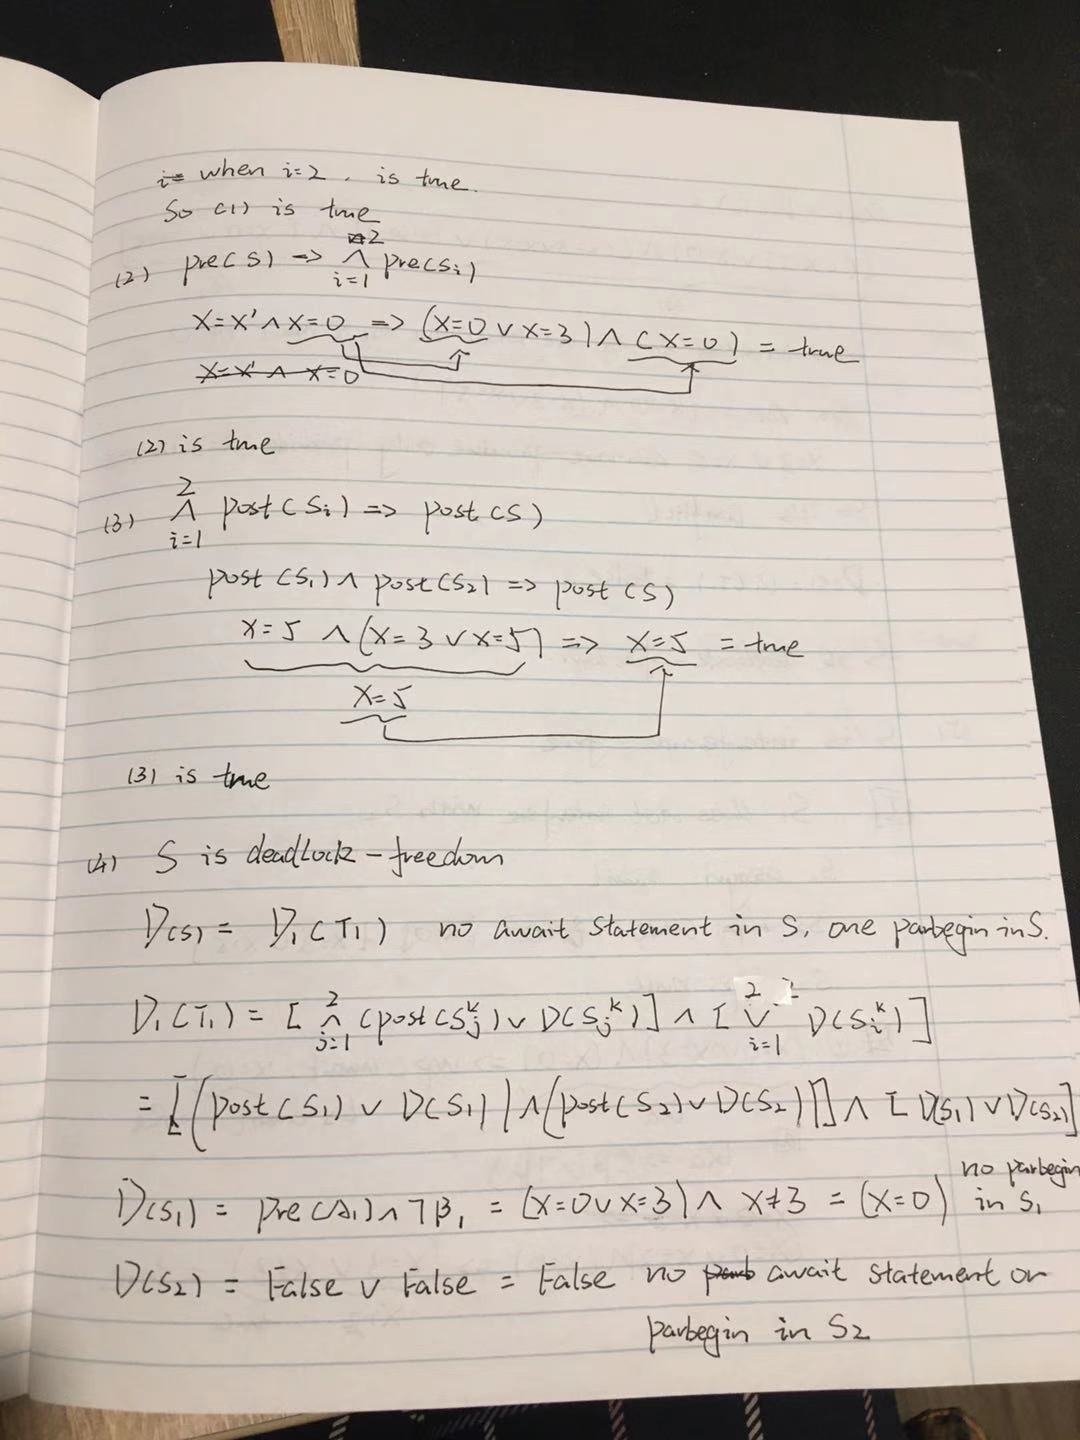 when i=2, is true.
So (1) is true
(2) pre(S) => ∧ i=1 2 pre(Si)
X=X' ∧ X=0 => (X=0 ∨ X=3) ∧ (X=0) = true
X=X' ∧ X=0
(2) is true
(3) ∧ i=1 2 post(Si) => post(S)
post(S1) ∧ post(S2) => post(S)
X=5 ∧ (X=3 ∨ X=5) => X=5 = true
X=5
(3) is true
(4) S is deadlock-freedom
D(S) = D1(T1) no await statement in S, one parbegin in S.
D1(T1) = [ ∧ j=1 2 (post(Sj^k) ∨ D(Sj^k)] ∧ [ ∨ i=1 2 D(Si^k)]
= [(post(S1) ∨ D(S1)) ∧ (post(S2) ∨ D(S2))] ∧ [D(S1) ∨ D(S2)]
D(S1) = pre(A1) ∧ ¬β1 = (X=0 ∨ X=3) ∧ X≠3 = (X=0) no parbegin in S1
D(S2) = False ∨ False = False no await statement or
parbegin in S2